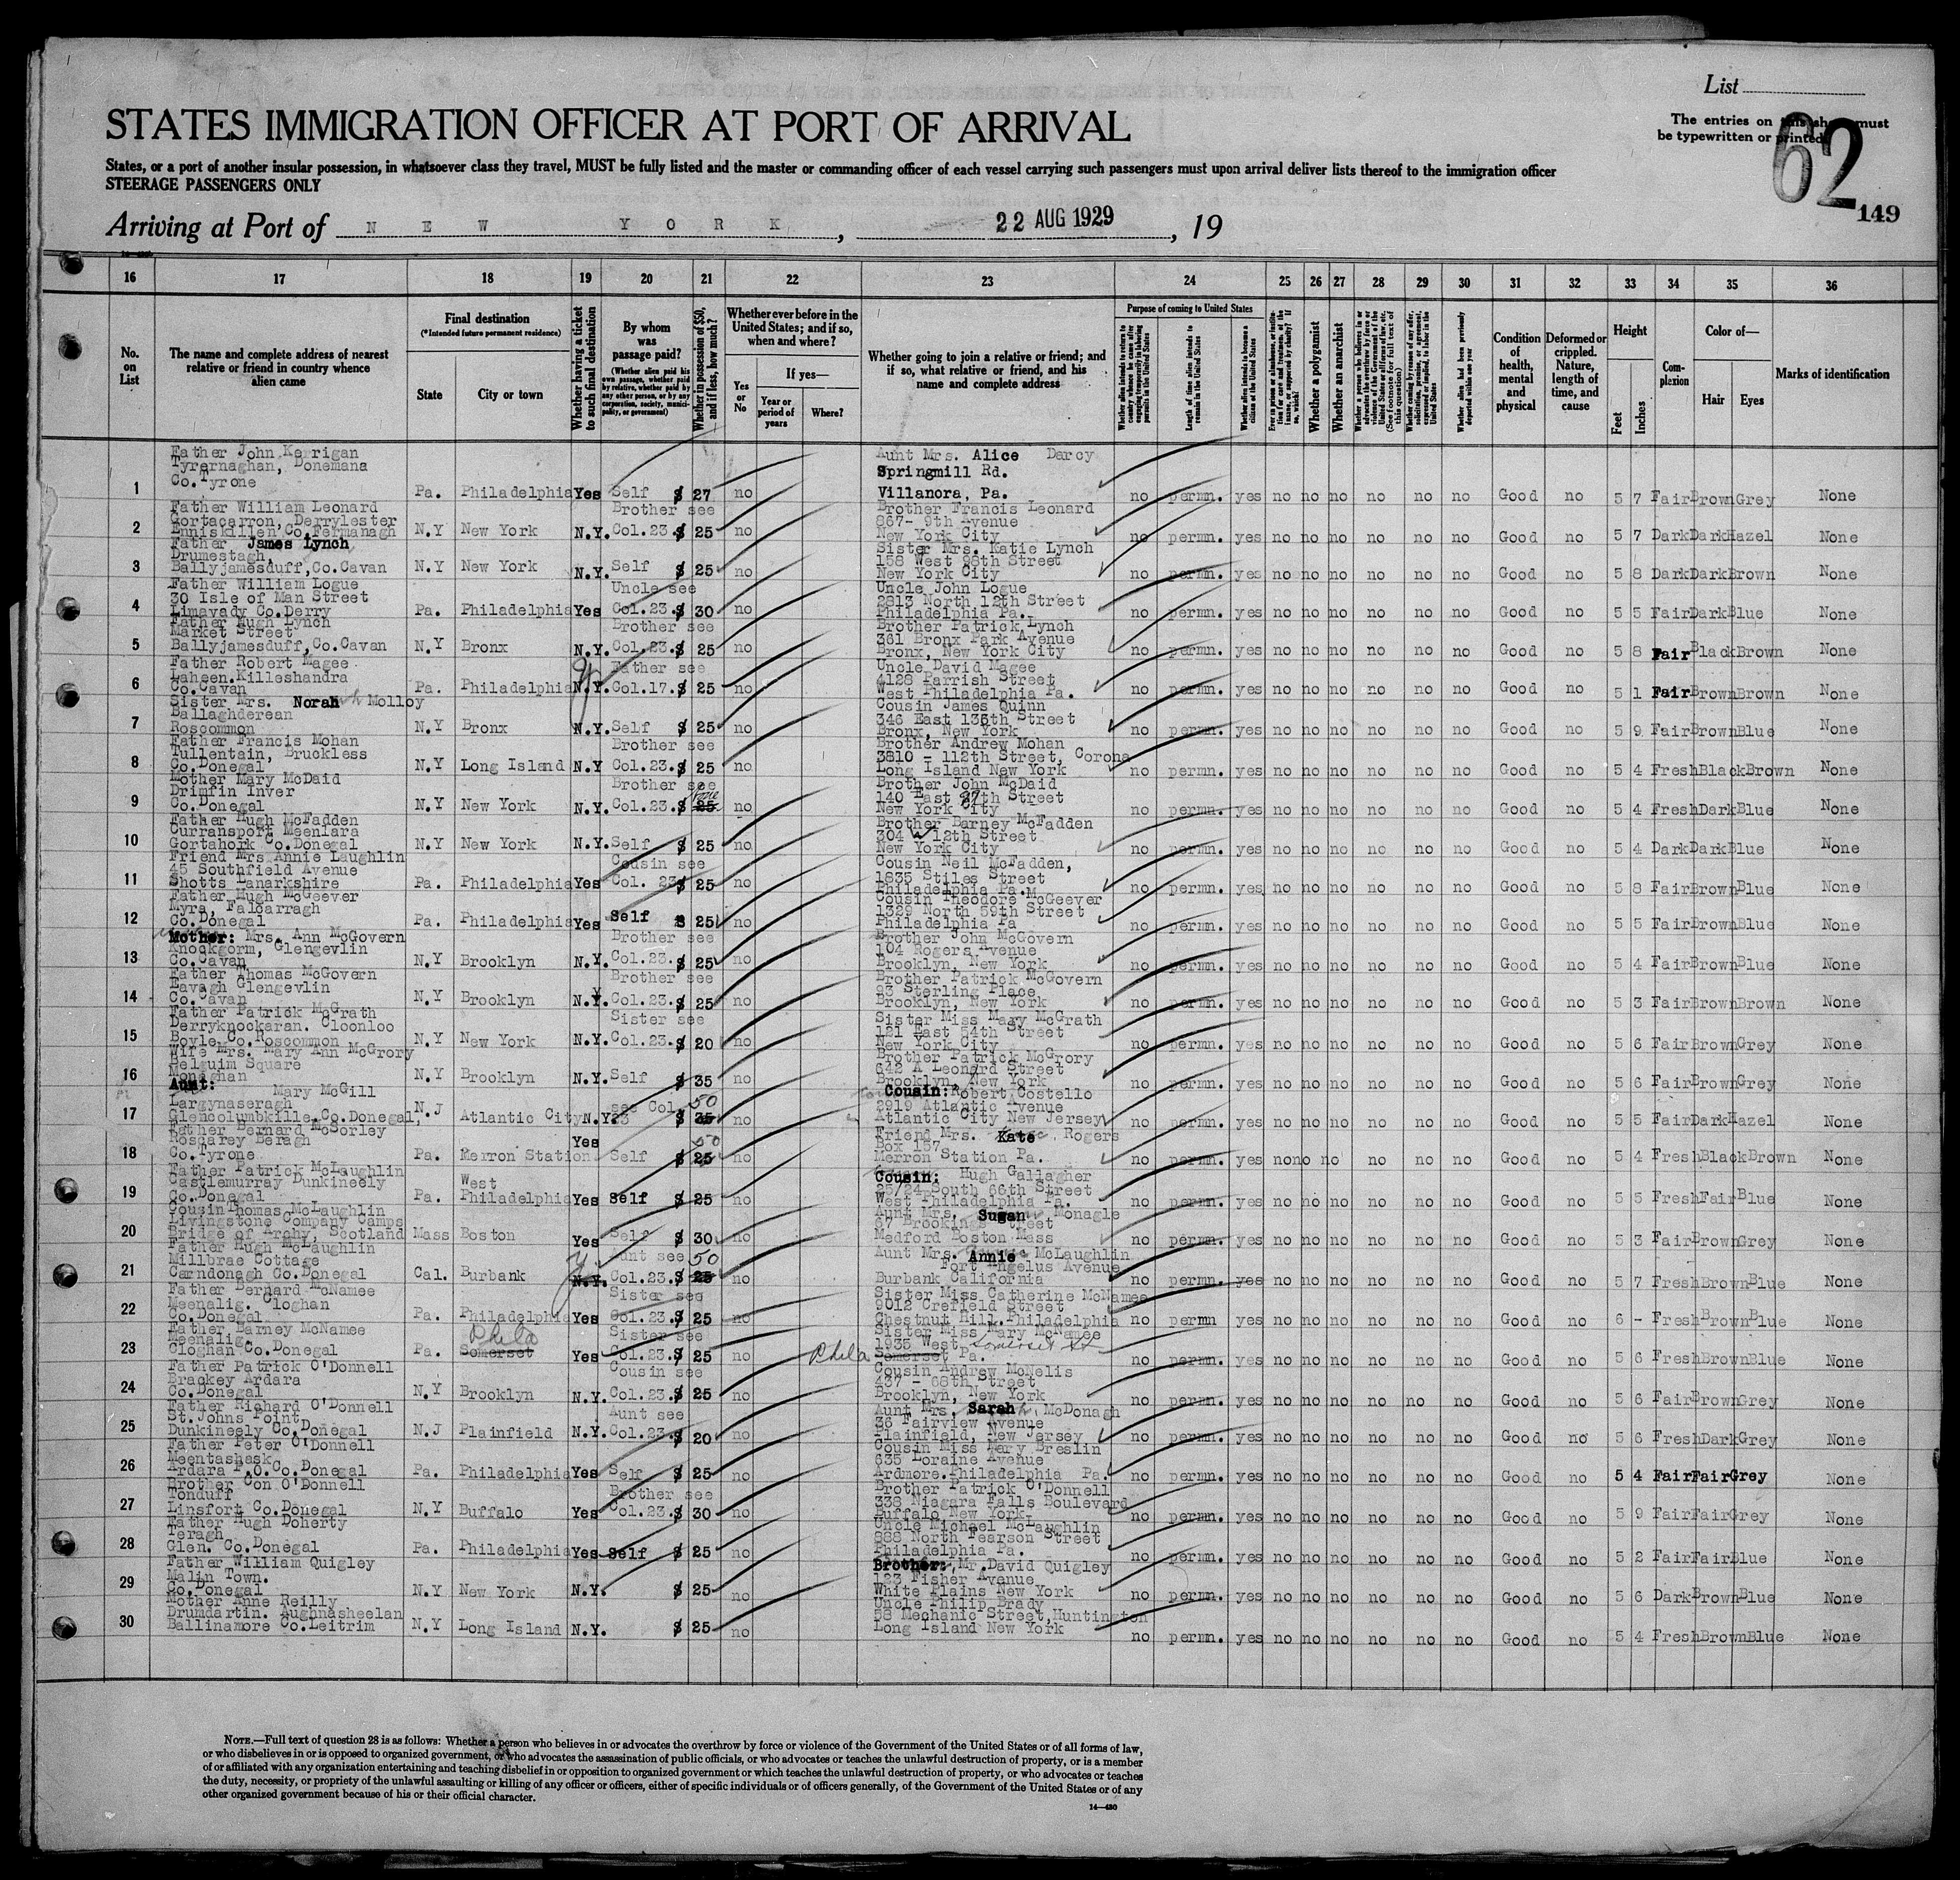 List
The entries on this sheet must
be typewritten or printed
62
149
STATES IMMIGRATION OFFICER AT PORT OF ARRIVAL
States, or a port of another insular possession, in whatsoever class they travel, MUST be fully listed and the master or commanding officer of each vessel carrying such passengers must upon arrival deliver lists thereof to the immigration officer
STEERAGE PASSENGERS ONLY
Arriving at Port of NEW YORK, 22 AUG 1929, 19
16 17 18 19 20 21 22 23 24 25 26 27 28 29 30 31 32 33 34 35 36
No. on List
The name and complete address of nearest relative or friend in country whence alien came
Final destination
(*Intended future permanent residence)
State
City or town
Whether having a ticket to such final destination
By whom was passage paid?
(Whether alien paid his own passage, whether paid by relative, whether paid by any other person, or by any corporation, society, municipality, or government)
Whether in possession of $50, and if less, how much?
Whether ever before in the United States; and if so, when and where?
Yes or No
If yes—
Year or period of years
Where?
Whether going to join a relative or friend; and if so, what relative or friend, and his name and complete address
Purpose of coming to United States
Length of time alien intends to remain in the United States
Whether alien intends to become a citizen of the United States
Whether a polygamist
Whether an anarchist
Whether alien had been previously deported within one year
Condition of health, mental and physical
Deformed or crippled. Nature, length of time, and cause
Height
Feet
Inches
Complexion
Color of—
Hair
Eyes
Marks of identification
1 Father John Kerrigan Tyrernaghan, Donemana Co.Tyrone Pa. Philadelphia Yes Self $ 27 no Aunt Mrs. Alice Darcy Springmill Rd. Villanora, Pa. no permn. yes no no no no no no Good no 5 7 Fair Brown Grey None
2 Father William Leonard Gortacarron, Derrylester Enniskillen Co.Fermanagh N.Y New York N.Y. Brother see Col.23. $ 25 no Brother Francis Leonard 867- 9th Avenue New York City no permn. yes no no no no no no Good no 5 7 Dark Dark Hazel None
3 Father James Lynch Drumestagh Ballyjamesduff,Co.Cavan N.Y New York N.Y. Self $ 25 no Sister Mrs. Katie Lynch 158 West 98th Street New York City no permn. yes no no no no no no Good no 5 8 Dark Dark Brown None
4 Father William Logue 30 Isle of Man Street Limavady Co.Derry Pa. Philadelphia Yes Uncle see Col.23. $ 30 no Uncle John Logue 2813 North 12th Street Philadelphia Pa. no permn. yes no no no no no no Good no 5 5 Fair Dark Blue None
5 Father Hugh Lynch Market Street Ballyjamesduff,Co.Cavan N.Y Bronx N.Y. Brother see Col.23. $ 25 no Brother Patrick Lynch 361 Bronx Park Avenue Bronx, New York City no permn. yes no no no no no no Good no 5 8 Fair Black Brown None
6 Father Robert Magee Laheen.Killeshandra Co.Cavan Pa. Philadelphia N.Y. Father see Col.17. $ 25 no Uncle David Magee 4128 Parrish Street West Philadelphia Pa. no permn. yes no no no no no no Good no 5 1 Fair Brown Brown None
7 Sister Mrs. Norah Molloy Ballaghderean Roscommon N.Y Bronx N.Y. Self $ 25 no Cousin James Quinn 346 East 135th Street Bronx, New York no permn. yes no no no no no no Good no 5 9 Fair Brown Blue None
8 Father Francis Mohan Tullentain, Bruckless Co.Donegal N.Y Long Island N.Y Brother see Col.23. $ 25 no Brother Andrew Mohan 3810 - 112th Street, Corona Long Island New York no permn. yes no no no no no no Good no 5 4 Fresh Black Brown None
9 Mother Mary McDaid Drimfin Inver Co.Donegal N.Y New York N.Y. Brother see Col.23. $ 25 no Brother John McDaid 140 East 97th Street New York City no permn. yes no no no no no no Good no 5 4 Fresh Dark Blue None
10 Father Hugh McFadden Curransport Meenlara Gortahork Co.Donegal N.Y New York N.Y. Self $ 25 no Brother Barney McFadden 304 W 12th Street New York City no permn. yes no no no no no no Good no 5 4 Dark Dark Blue None
11 Friend Mrs Annie Laughlin 45 Southfield Avenue Shotts Lanarkshire Pa. Philadelphia Yes Cousin see Col. 23 $ 25 no Cousin Neil McFadden, 1835 Stiles Street Philadelphia Pa. no permn. yes no no no no no no Good no 5 8 Fair Brown Blue None
12 Father Hugh McGeever Myra, Falcarragh Co.Donegal Pa. Philadelphia Yes Self $ 25 no Cousin Theodore McGeever 1329 North 59th Street Philadelphia Pa no permn. yes no no no no no no Good no 5 5 Fair Brown Blue None
13 Mother: Mrs. Ann McGovern Knockgorm, Glengevlin Co.Cavan N.Y Brooklyn N.Y. Brother see Col.23. $ 25 no Brother John McGovern 104 Rogers Avenue Brooklyn, New York no permn. yes no no no no no no Good no 5 4 Fair Brown Blue None
14 Father Thomas McGovern Eavagh Glengevlin Co.Cavan N.Y Brooklyn N.Y. Brother see Col.23. $ 25 no Brother Patrick McGovern 93 Sterling Place Brooklyn, New York no permn. yes no no no no no no Good no 5 3 Fair Brown Brown None
15 Father Patrick McGrath Derryknockaran. Cloonloo Boyle Co.Roscommon N.Y New York N.Y. Sister see Col.23. $ 20 no Sister Miss Mary McGrath 121 East 54th Street New York City no permn. yes no no no no no no Good no 5 6 Fair Brown Grey None
16 Wife Mrs. Mary Ann McGrory Belguim Square Monaghan N.Y Brooklyn N.Y. Self $ 35 no Brother Patrick McGrory 642 A Leonard Street Brooklyn, New York no permn. yes no no no no no no Good no 5 6 Fair Brown Grey None
17 Aunt: Mary McGill Largynaseragh Glencolumbkille,Co.Donegal, N.J Atlantic City N.Y. see Col. 23 $ 50 no Cousin: Robert Costello 2919 Atlantic Avenue Atlantic City New Jersey no permn. yes no no no no no no Good no 5 5 Fair Dark Hazel None
18 Father Bernard McSorley Roscarey Beragh Co.Tyrone Pa. Merron Station Yes Self $ 25 50 no Friend Mrs. Kate Rogers Box 187 Merron Station Pa. no permn. yes no no no no no no Good no 5 4 Fresh Black Brown None
19 Father Patrick McLaughlin Castlemurray Dunkineely Co.Donegal Pa. West Philadelphia Yes Self $ 25 no Cousin: Hugh Gallagher 25/24 South 66th Street West Philadelphia Pa. no permn. yes no no no no no no Good no 5 5 Fresh Fair Blue None
20 Cousin Thomas McLaughlin Livingstone Company Camps Bridge of Archy, Scotland Mass Boston Yes Self $ 30 no Aunt Mrs. Susan Monagle 67 Brookings Street Medford Boston Mass no permn. yes no no no no no no Good no 5 3 Fair Brown Grey None
21 Father Hugh McLaughlin Millbrae Cottage Carndonagh Co.Donegal Cal. Burbank N.Y. Aunt see Col.23. $ 25 50 no Aunt Mrs. Annie McLaughlin Fort Angelus Avenue Burbank California no permn. yes no no no no no no Good no 5 7 Fresh Brown Blue None
22 Father Bernard McNamee Meenalig. Cloghan Co.Donegal Pa. Philadelphia Yes Sister see Col.23. $ 25 no Sister Miss Catherine McNamee 9012 Crefield Street Chestnut Hill.Philadelphia no permn yes no no no no no no Good no 6 - Fresh Brown Blue None
23 Father Barney McNamee Meenalig. Cloghan Co.Donegal Pa. Somerset Phila Yes Sister see Col.23. $ 25 no Phila Sister Miss Mary McNamee 1935 West Somerset St Somerset Pa. no permn. yes no no no no no no Good no 5 6 Fresh Brown Blue None
24 Father Patrick O'Donnell Brackey Ardara Co.Donegal N.Y Brooklyn N.Y. Cousin see Col.23. $ 25 no Cousin Andrew McNelis 437 - 68th Street Brooklyn, New York no permn. yes no no no no no no Good no 5 6 Fair Brown Grey None
25 Father Richard O'Donnell St.Johns Point Dunkineely Co.Donegal N.J Plainfield N.Y. Aunt see Col.23. $ 20 no Aunt Mrs. Sarah McDonagh 36 Fairview Avenue Plainfield, New Jersey no permn. yes no no no no no no Good no 5 6 Fresh Dark Grey None
26 Father Peter O'Donnell Meentashesk Ardara P.O.Co.Donegal Pa. Philadelphia Yes Self $ 25 no Cousin Miss Mary Breslin 635 Loraine Avenue Ardmore.Philadelphia Pa. no permn. yes no no no no no no Good no 5 4 Fair Fair Grey None
27 Brother Con O'Donnell Tonduff Linsfort Co.Donegal N.Y Buffalo Yes Brother see Col.23. $ 30 no Brother Patrick O'Donnell 338 Niagara Falls Boulevard Buffalo New York no permn. yes no no no no no no Good no 5 9 Fair Fair Grey None
28 Father Hugh Doherty Teragh Glen. Co.Donegal Pa. Philadelphia Yes Self $ 25 no Uncle Michael McLaughlin 888 North Pearson Street Philadelphia Pa. no permn. yes no no no no no no Good no 5 2 Fair Fair Blue None
29 Father William Quigley Malin Town. Co.Donegal N.Y New York N.Y. $ 25 no Brother: Mr.David Quigley 123 Fisher Avenue White Plains New York no permn. yes no no no no no no Good no 5 6 Dark Brown Blue None
30 Mother Anne Reilly Drumdartin. Aughnasheelan Ballinamore Co.Leitrim N.Y Long Island N.Y. $ 25 no Uncle Philip Brady 58 Mechanic Street,Huntington Long Island New York no permn. yes no no no no no no Good no 5 4 Fresh Brown Blue None
NOTE.—Full text of question 28 is as follows: Whether a person who believes in or advocates the overthrow by force or violence of the Government of the United States or of all forms of law,
or who disbelieves in or is opposed to organized government, or who advocates the assassination of public officials, or who advocates or teaches the unlawful destruction of property, or is a member
of or affiliated with any organization entertaining and teaching disbelief in or opposition to organized government or which teaches the unlawful destruction of property, or who advocates or teaches
the duty, necessity, or propriety of the unlawful assaulting or killing of any officer or officers, either of specific individuals or of officers generally, of the Government of the United States or of any
other organized government because of his or their official character.
14—430